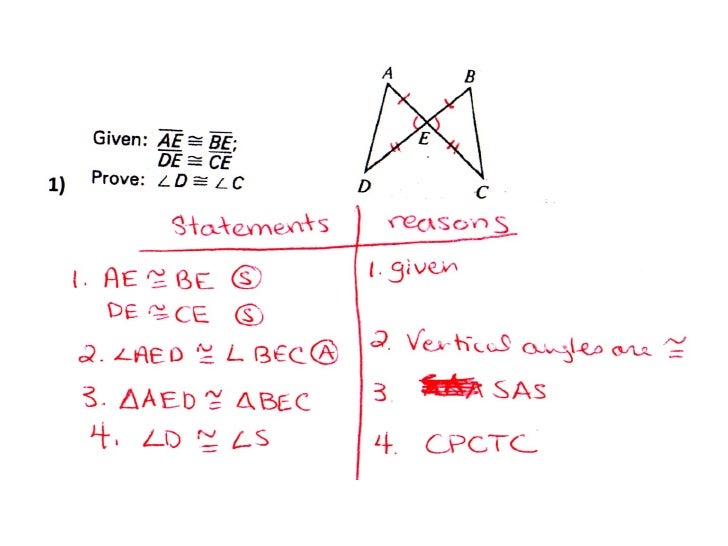 A B
Given: AE ≅ BE;
DE ≅ CE
E
1) Prove: ∠D ≅ ∠C
D C
Statements reasons
1. AE ≅ BE Ⓢ 1. given
DE ≅ CE Ⓢ
2. ∠AED ≅ ∠BEC Ⓐ 2. Vertical angles are ≅
3. △AED ≅ △BEC 3. SAS
4. ∠D ≅ ∠S 4. CPCTC